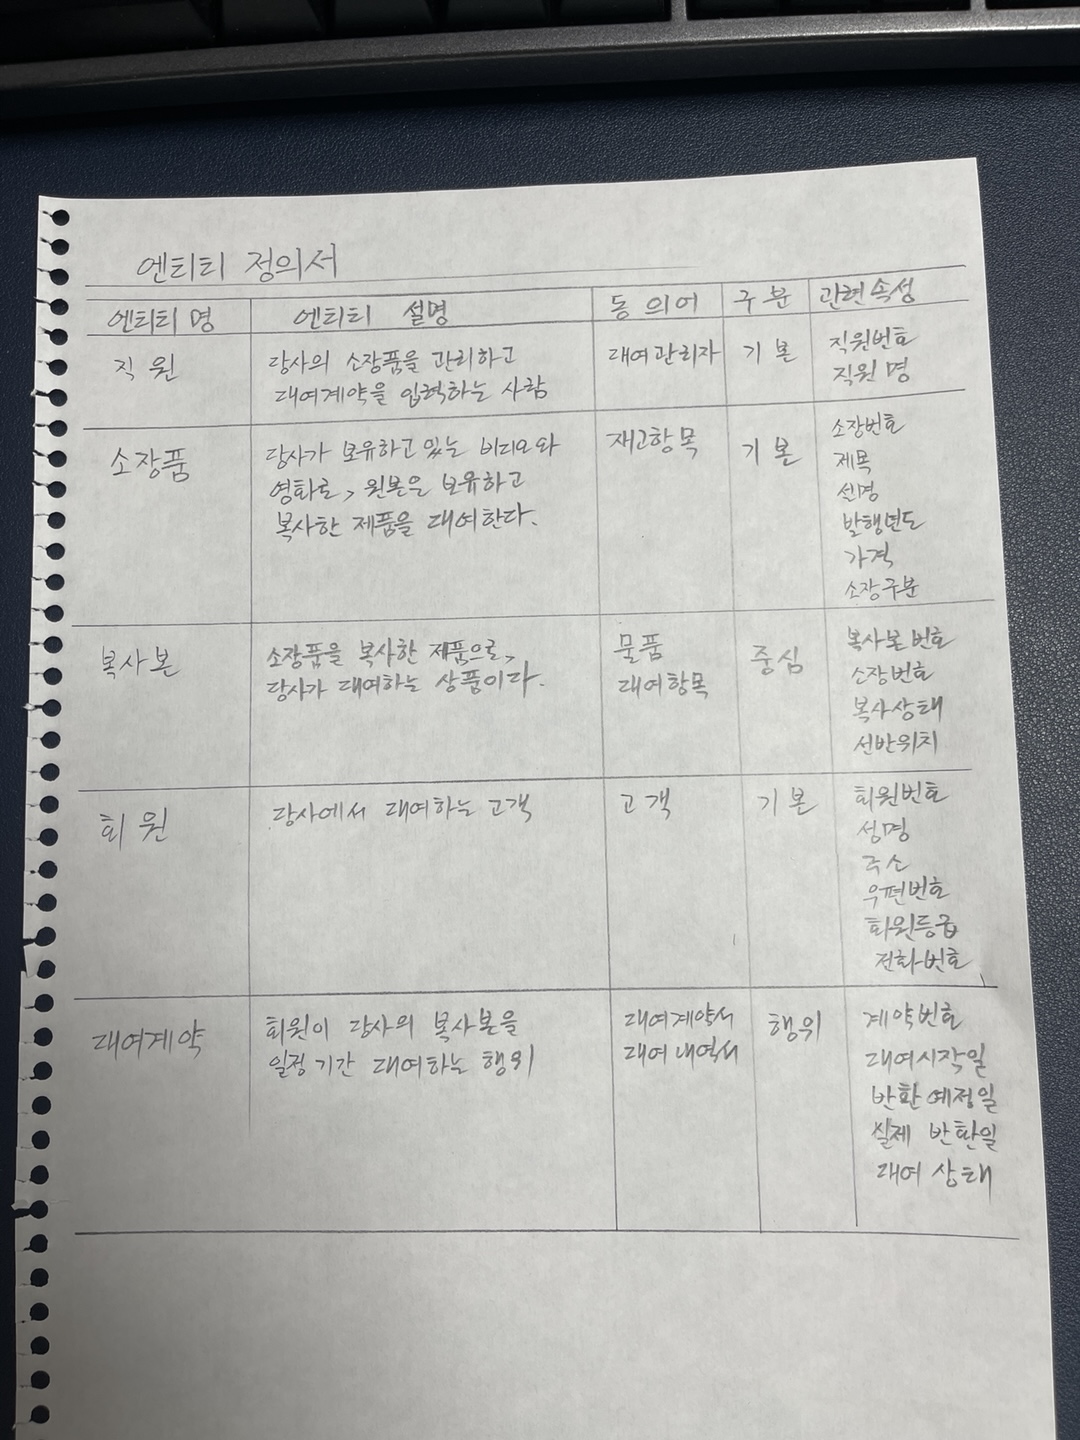 엔티티 정의서
엔티티 명 엔티티 설명 동의어 구분 관련속성
직원 당사의 소장품을 관리하고 대여관리자 기본 직원번호
대여계약을 입력하는 사람 직원명
소장품 당사가 보유하고 있는 비디오와 재고항목 기본 소장번호
영화로, 원본은 보유하고 제목
복사한 제품을 대여한다. 설명
발행년도
가격
소장구분
복사본 소장품을 복사한 제품으로, 물품 중심 복사본 번호
당사가 대여하는 상품이다. 대여항목 소장번호
복사상태
선반위치
회원 당사에서 대여하는 고객 고객 기본 회원번호
성명
주소
우편번호
회원등급
전화번호
대여계약 회원이 당사의 복사본을 대여계약서 행위 계약번호
일정 기간 대여하는 행위 대여내역서 대여시작일
반환예정일
실제 반환일
대여상태